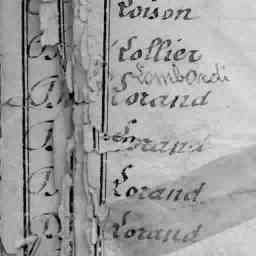 Loison
Lollier
Lombardi
Lorand
Lorand
Lorand
Lorand